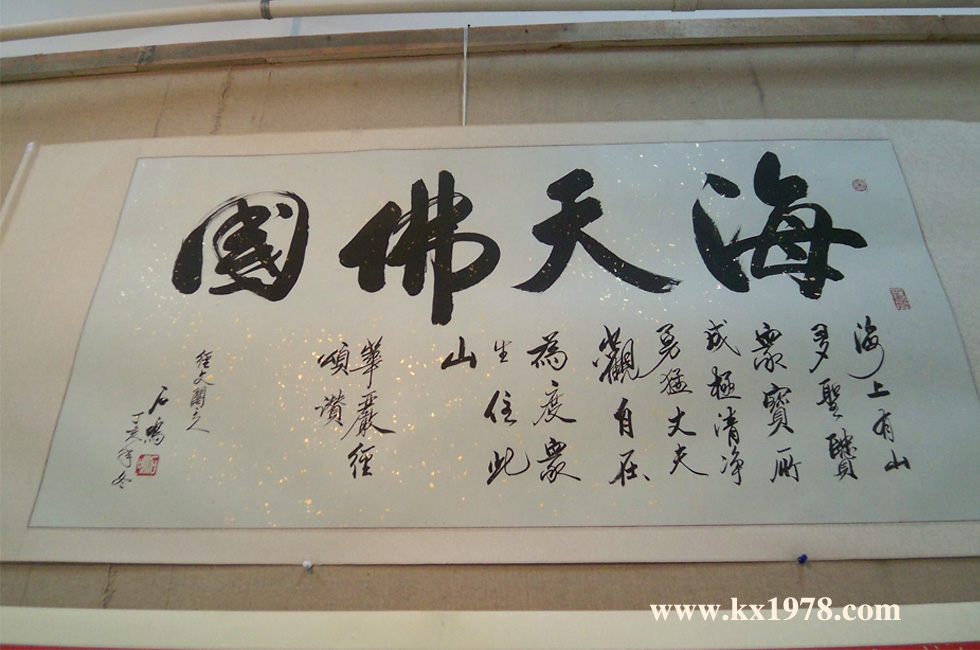 海天佛國
海上有山
多聖賢
衆寶所
成極清净
勇猛丈夫
觀自在
為度衆
生住此
山
華嚴經
頌讚
石鳴
丁亥年冬
www.kx1978.com